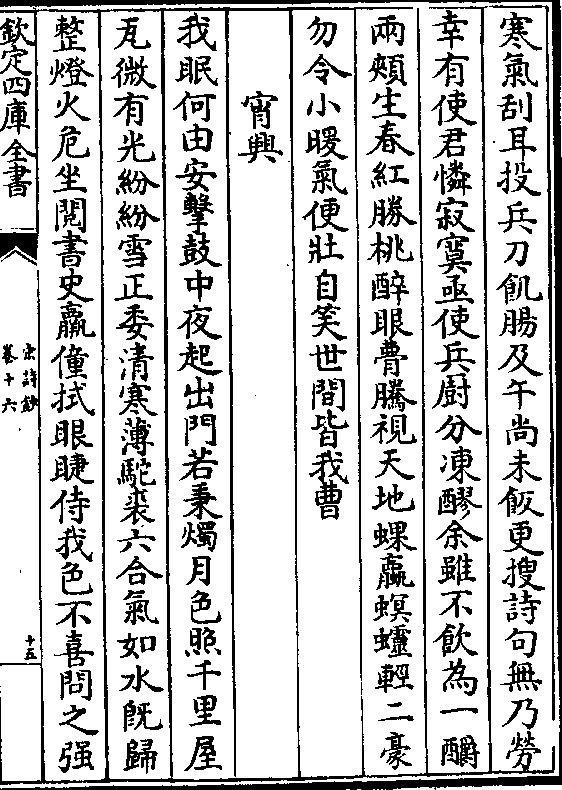 寒氣刮耳投兵刀飢腸及午尚未飯更搜詩句無乃勞
幸有使君憐寂寞亟使兵廚分凍醪余雖不飲為一釂
兩頰生春紅勝桃醉眼瞢騰視天地蜾蠃螟蠦輕二豪
勿令小暖氣便壯自笑世間皆我曹
宵興
我眠何由安擊鼓中夜起出門若秉燭月色照千里屋
瓦微有光紛紛雪正委清寒薄駝裘六合氣如水旣歸
整燈火危坐閱書史羸僮拭眼睫侍我色不喜問之强
欽定四庫全書
宋詩鈔
卷十六
十五